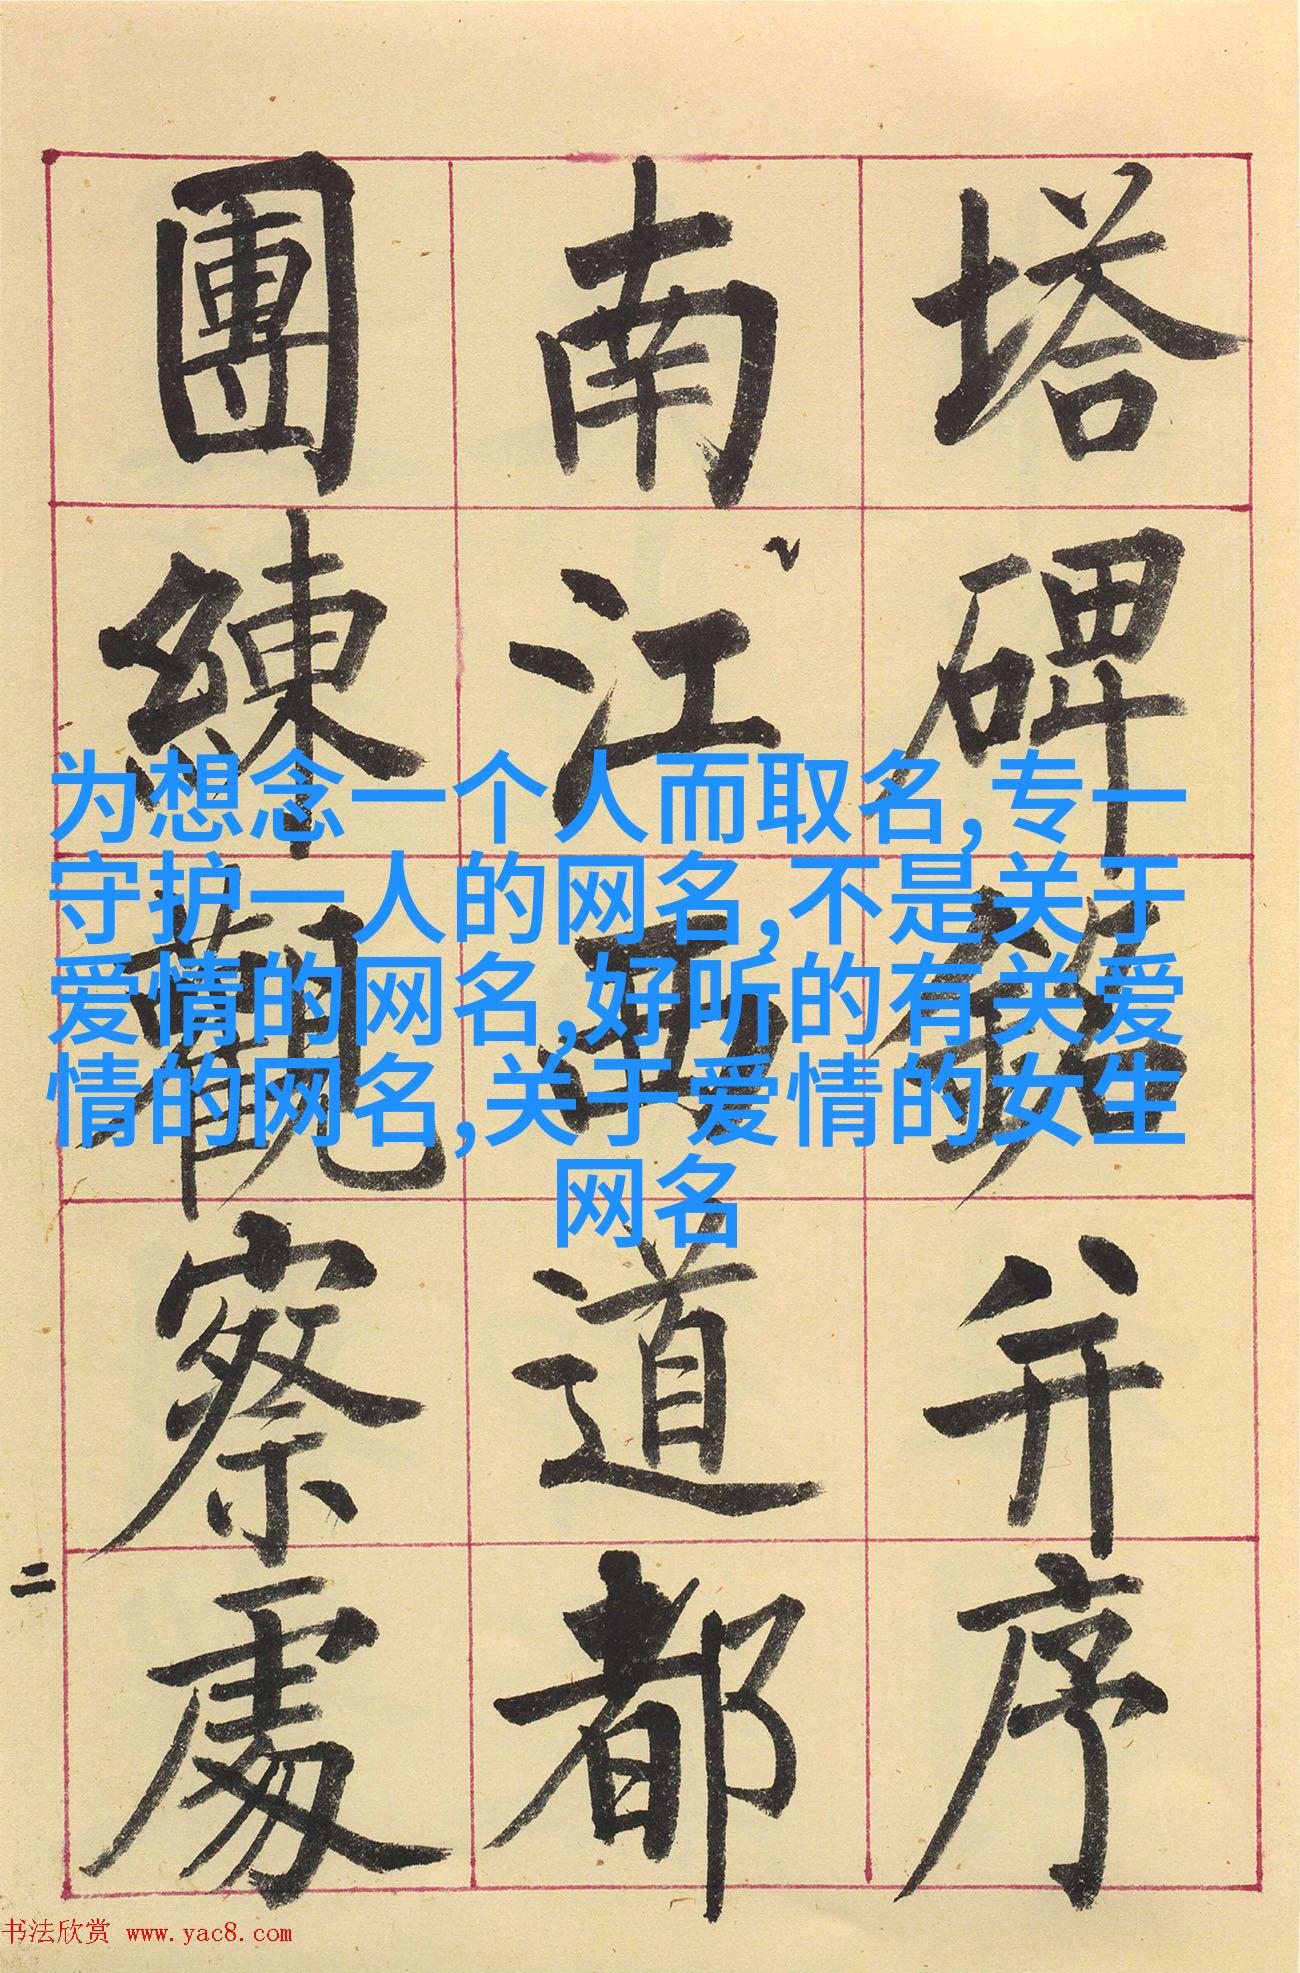 塔碑銘并序
南江西道都
團練觀察處
二
为想念一个人而取名,专一
守护一人的网名,不是关于
爱情的网名,好听的有关爱
情的网名,关于爱情的女生
网名
书法欣赏 www.yac8.com